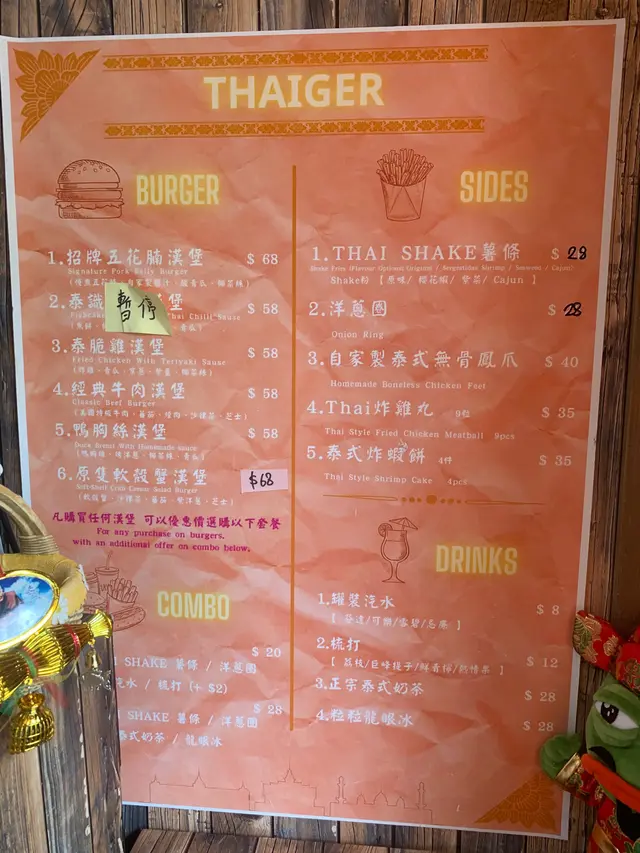 THAIGER
BURGER
1.招牌五花腩漢堡 $ 68
Signature Pork Belly Burger
2.泰 堡 $ 58
暫停
Thai Chilli Sauce
3.泰脆雞漢堡 $ 58
Fried Chicken With Teriyaki Sauce
4.經典牛肉漢堡 $ 58
Classic Beef Burger
5.鴨胸絲漢堡 $ 58
Duck Breast With Homemade sauce
6.原隻軟殼蟹漢堡 $68
Soft-Shell Crab Caesar Salad Burger
凡購買任何漢堡 可以優惠價選購以下套餐
For any purchase on burgers,
with an additional offer on combo below,
COMBO
$ 20
SHAKE 薯條 / 洋蔥圈
汽水 / 梳打 (+ $2)
$ 28
SHAKE 薯條 / 洋蔥圈
泰式奶茶 / 龍眼冰
SIDES
1.THAI SHAKE薯條 $ 28
Shake粉 【 原味/ 櫻花蝦/ 紫菜/ Cajun 】
2.洋蔥圈 $ 28
Onion Ring
3.自家製泰式無骨鳳爪 $ 40
Homemade Boneless Chicken Feet
4.Thai炸雞丸 9粒 $ 35
Thai Style Fried Chicken Meatball 9pcs
5.泰式炸蝦餅 4件 $ 35
Thai Style Shrimp Cake 4pcs
DRINKS
1.罐裝汽水 $ 8
【 芬達/可樂/雪碧/忌廉 】
2.梳打 $ 12
【 荔枝/巨峰提子/鮮青檸/熱情果 】
3.正宗泰式奶茶 $ 28
4.粒粒龍眼冰 $ 28